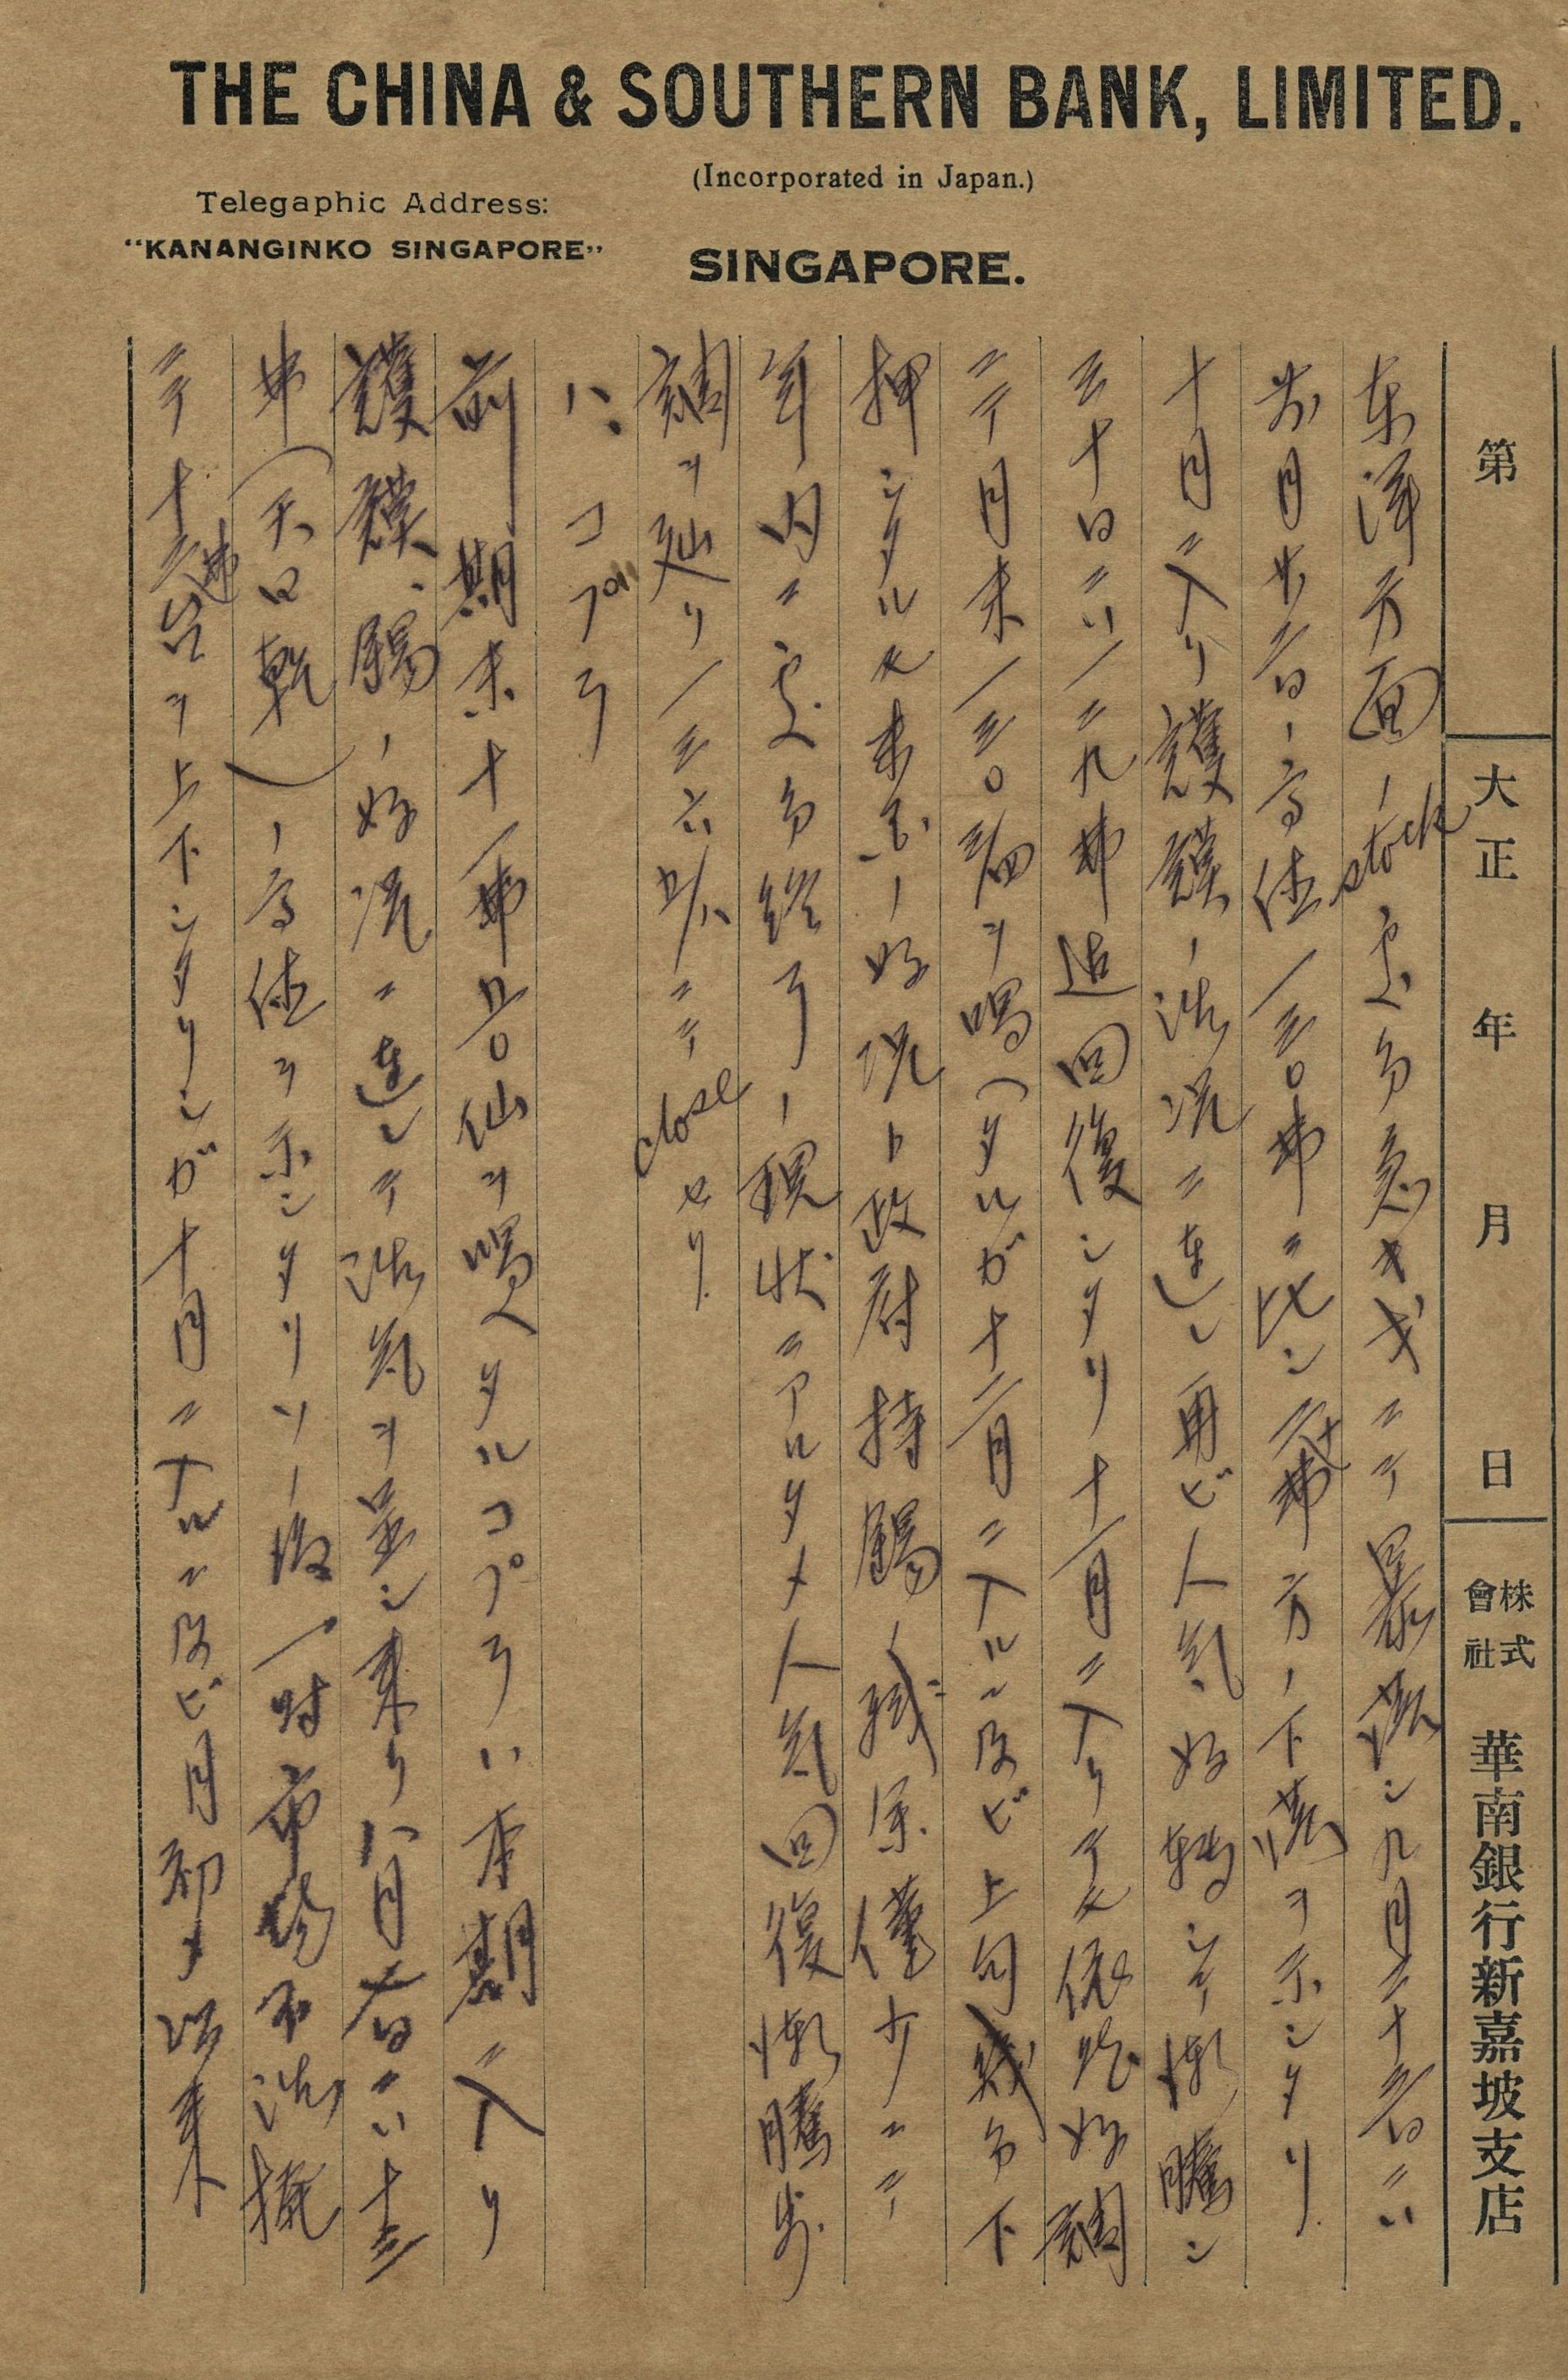 THE CHINA & SOUTHERN BANK, LIMITED.
(Incorporated in Japan.)
Telegaphic Address:
"KANANGINKO SINGAPORE"
SINGAPORE.
第 大正 年 月 日 株式會社 華南銀行新嘉坡支店
東洋方面ノstock処分急ギ ニテ暴落シ九月二十 日ニハ
前月 日ノ高値一三〇弗ニ比シ二十弗方ノ下落ヲ示シタリ
十月ニ入リ護謨ノ活況ニ連レ再ビ人気好転シテ漸騰シ
三十日ニハ一二九弗迄回復シタリ十一月ニ入リテモ依然好調
ニテ月末一三〇 ヲ唱ヘタルガ十二月ニ入ルニ及ビ上旬幾分下
押シタルモ ノ好況ト政府持錫ノ残 僅少ニテ
年内ニ処分終了ノ現状ニアルタメ人気回復漸騰歩
調ヲ辿リ一三六弗 ニテcloseセリ
ハ、コプラ
前期末十一弗 仙ヲ唱ヘタルコプラハ本期ニ入リ
護謨、錫ノ好況ニ連レテ活気ヲ呈シ来リ八月 日ニハ十三
弗(天日乾)ノ高値ヲ示シタリソノ後一時市場不活撥
ニテ十二弗台ヲ上下シタリシガ十月ニナルニ及ビ月初メ以来